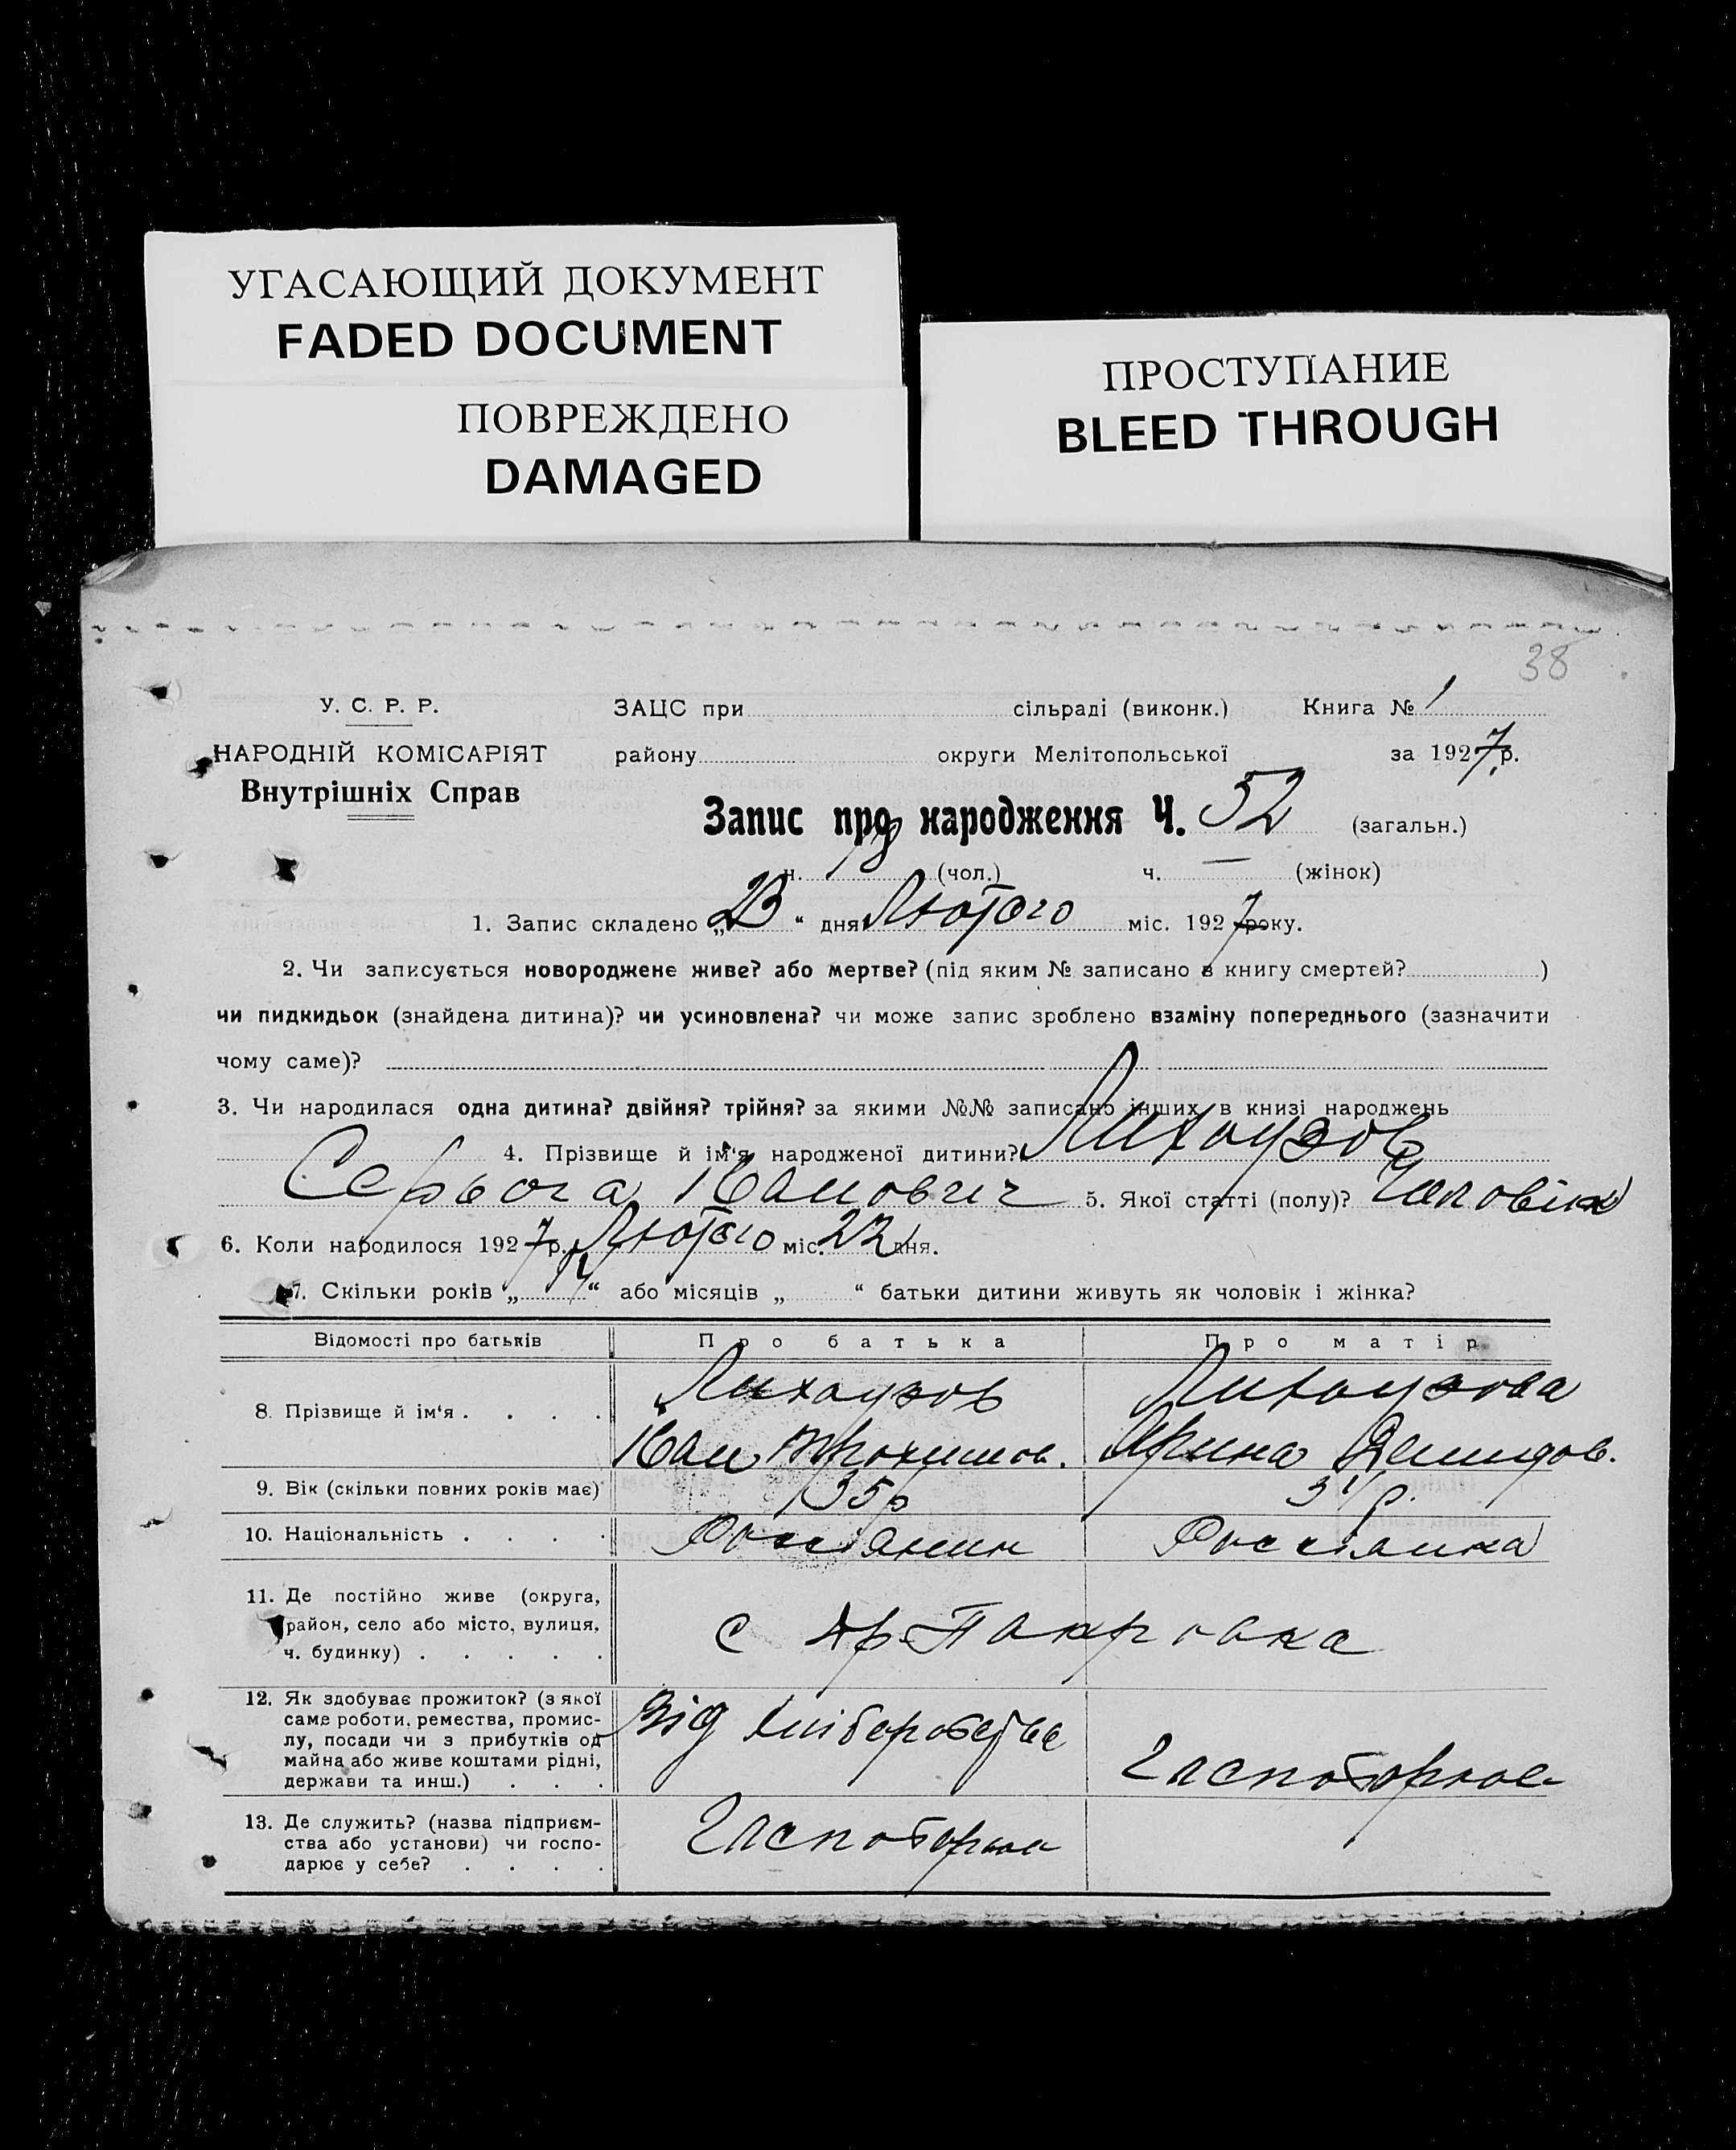 УГАСАЮЩИЙ ДОКУМЕНТ
FADED DOCUMENT
ПОВРЕЖДЕНО
DAMAGED
ПРОСТУПАНИЕ
BLEED THROUGH
38
У. С. Р. Р.
НАРОДНІЙ КОМІСАРІЯТ
Внутрішніх Справ
ЗАЦС при сільраді (виконк.) Книга № 1
району округи Мелітопольської за 1927 р.
Запис про народження Ч. 52 (загальн.)
ч. (чол.) ч. — (жінок)
1. Запис складено „23“ дня Лютого міс. 1927 року.
2. Чи записується новороджене живе? або мертве? (під яким № записано в книгу смертей? )
чи пидкидьок (знайдена дитина)? чи усиновлена? чи може запис зроблено взаміну попереднього (зазначити
чому саме)?
3. Чи народилася одна дитина? двійня? трійня? за якими №№ записано інших в книзі народжень
4. Прізвище й ім'я народженої дитини?
Іванович 5. Якої статті (полу)? Чоловік
6. Коли народилося 1927 р. Лютого міс. 22 дня.
7. Скільки років „ “ або місяців „ “ батьки дитини живуть як чоловік і жінка?
Відомості про батьків Про батька Про матір
8. Прізвище й ім'я . . . .
Іван Ирина Демидов.
9. Вік (скільки повних років має) 35 р 31 р.
10. Національність . . . . Россіянин Россіянка
11. Де постійно живе (округа,
район, село або місто, вулиця,
ч. будинку) . . . . .
с
12. Як здобуває прожиток? (з якої
саме роботи, ремества, промис-
лу, посади чи з прибутків од
майна або живе коштами рідні,
держави та инш.) . . .
Від
13. Де служить? (назва підприєм-
ства або установи) чи госпо-
дарює у себе? . . . .